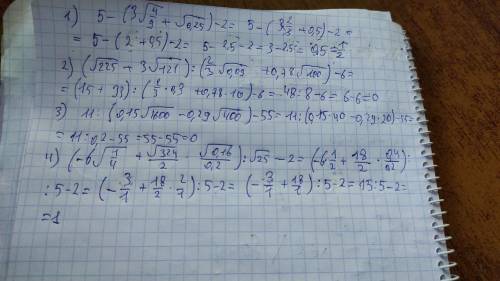 1) 5-(3√4/9 + √0,25)-2= 5-(3 2/3 + 0,5)-2=
= 5-(2+0,5)-2= 5-2,5-2=3-2,5=0,5=1/2
2) (√225 + 3√121):(2/3√0,09 +0,78√100)-6=
=(15+33):(2/3·0,3 +0,78·10)-6=48:8-6=6-6=0
3) 11:(0,15√1600-0,29√400)-55=11:(0,15·40-0,29·20)-55=
=11:0,2-55=55-55=0
4) (-6√1/4 + √324/2 · √0,16/0,2):√25-2=(-6 1/2+18/2·0,4/0,2):
:5-2=(-3/1+18/2·2/1):5-2=(-3/1+18/1):5-2=15:5-2=
=1